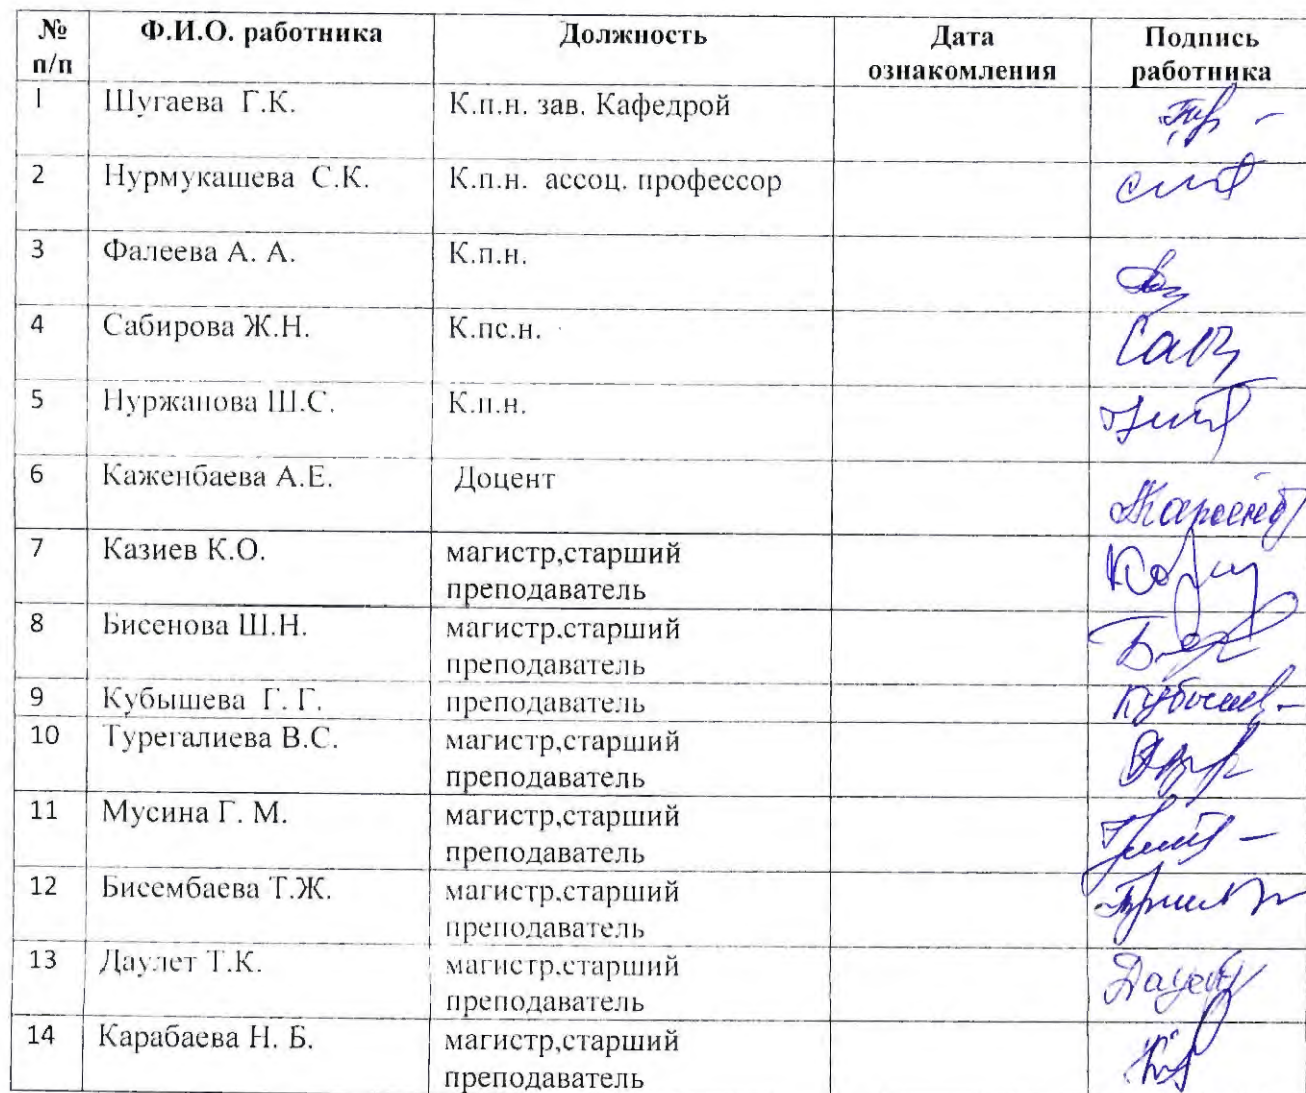 № Ф.И.О. работника Должность Дата Подпись
п/п ознакомления работника
1 Шугаева Г.К. К.п.н. зав. Кафедрой
2 Нурмукашева С.К. К.п.н. ассоц. профессор
3 Фалеева А. А. К.п.н.
4 Сабирова Ж.Н. К.пс.н.
5 Нуржанова Ш.С. К.п.н.
6 Каженбаева А.Е. Доцент
7 Казиев К.О. магистр,старший
преподаватель
8 Бисенова Ш.Н. магистр.старший
преподаватель
9 Кубышева Г. Г. преподаватель
10 Турегалиева В.С. магистр,старший
преподаватель
11 Мусина Г. М. магистр,старший
преподаватель
12 Бисембаева Т.Ж. магистр,старший
преподаватель
13 Даулет Т.К. магистр.старший
преподаватель
14 Карабаева Н. Б. магистр,старший
преподаватель